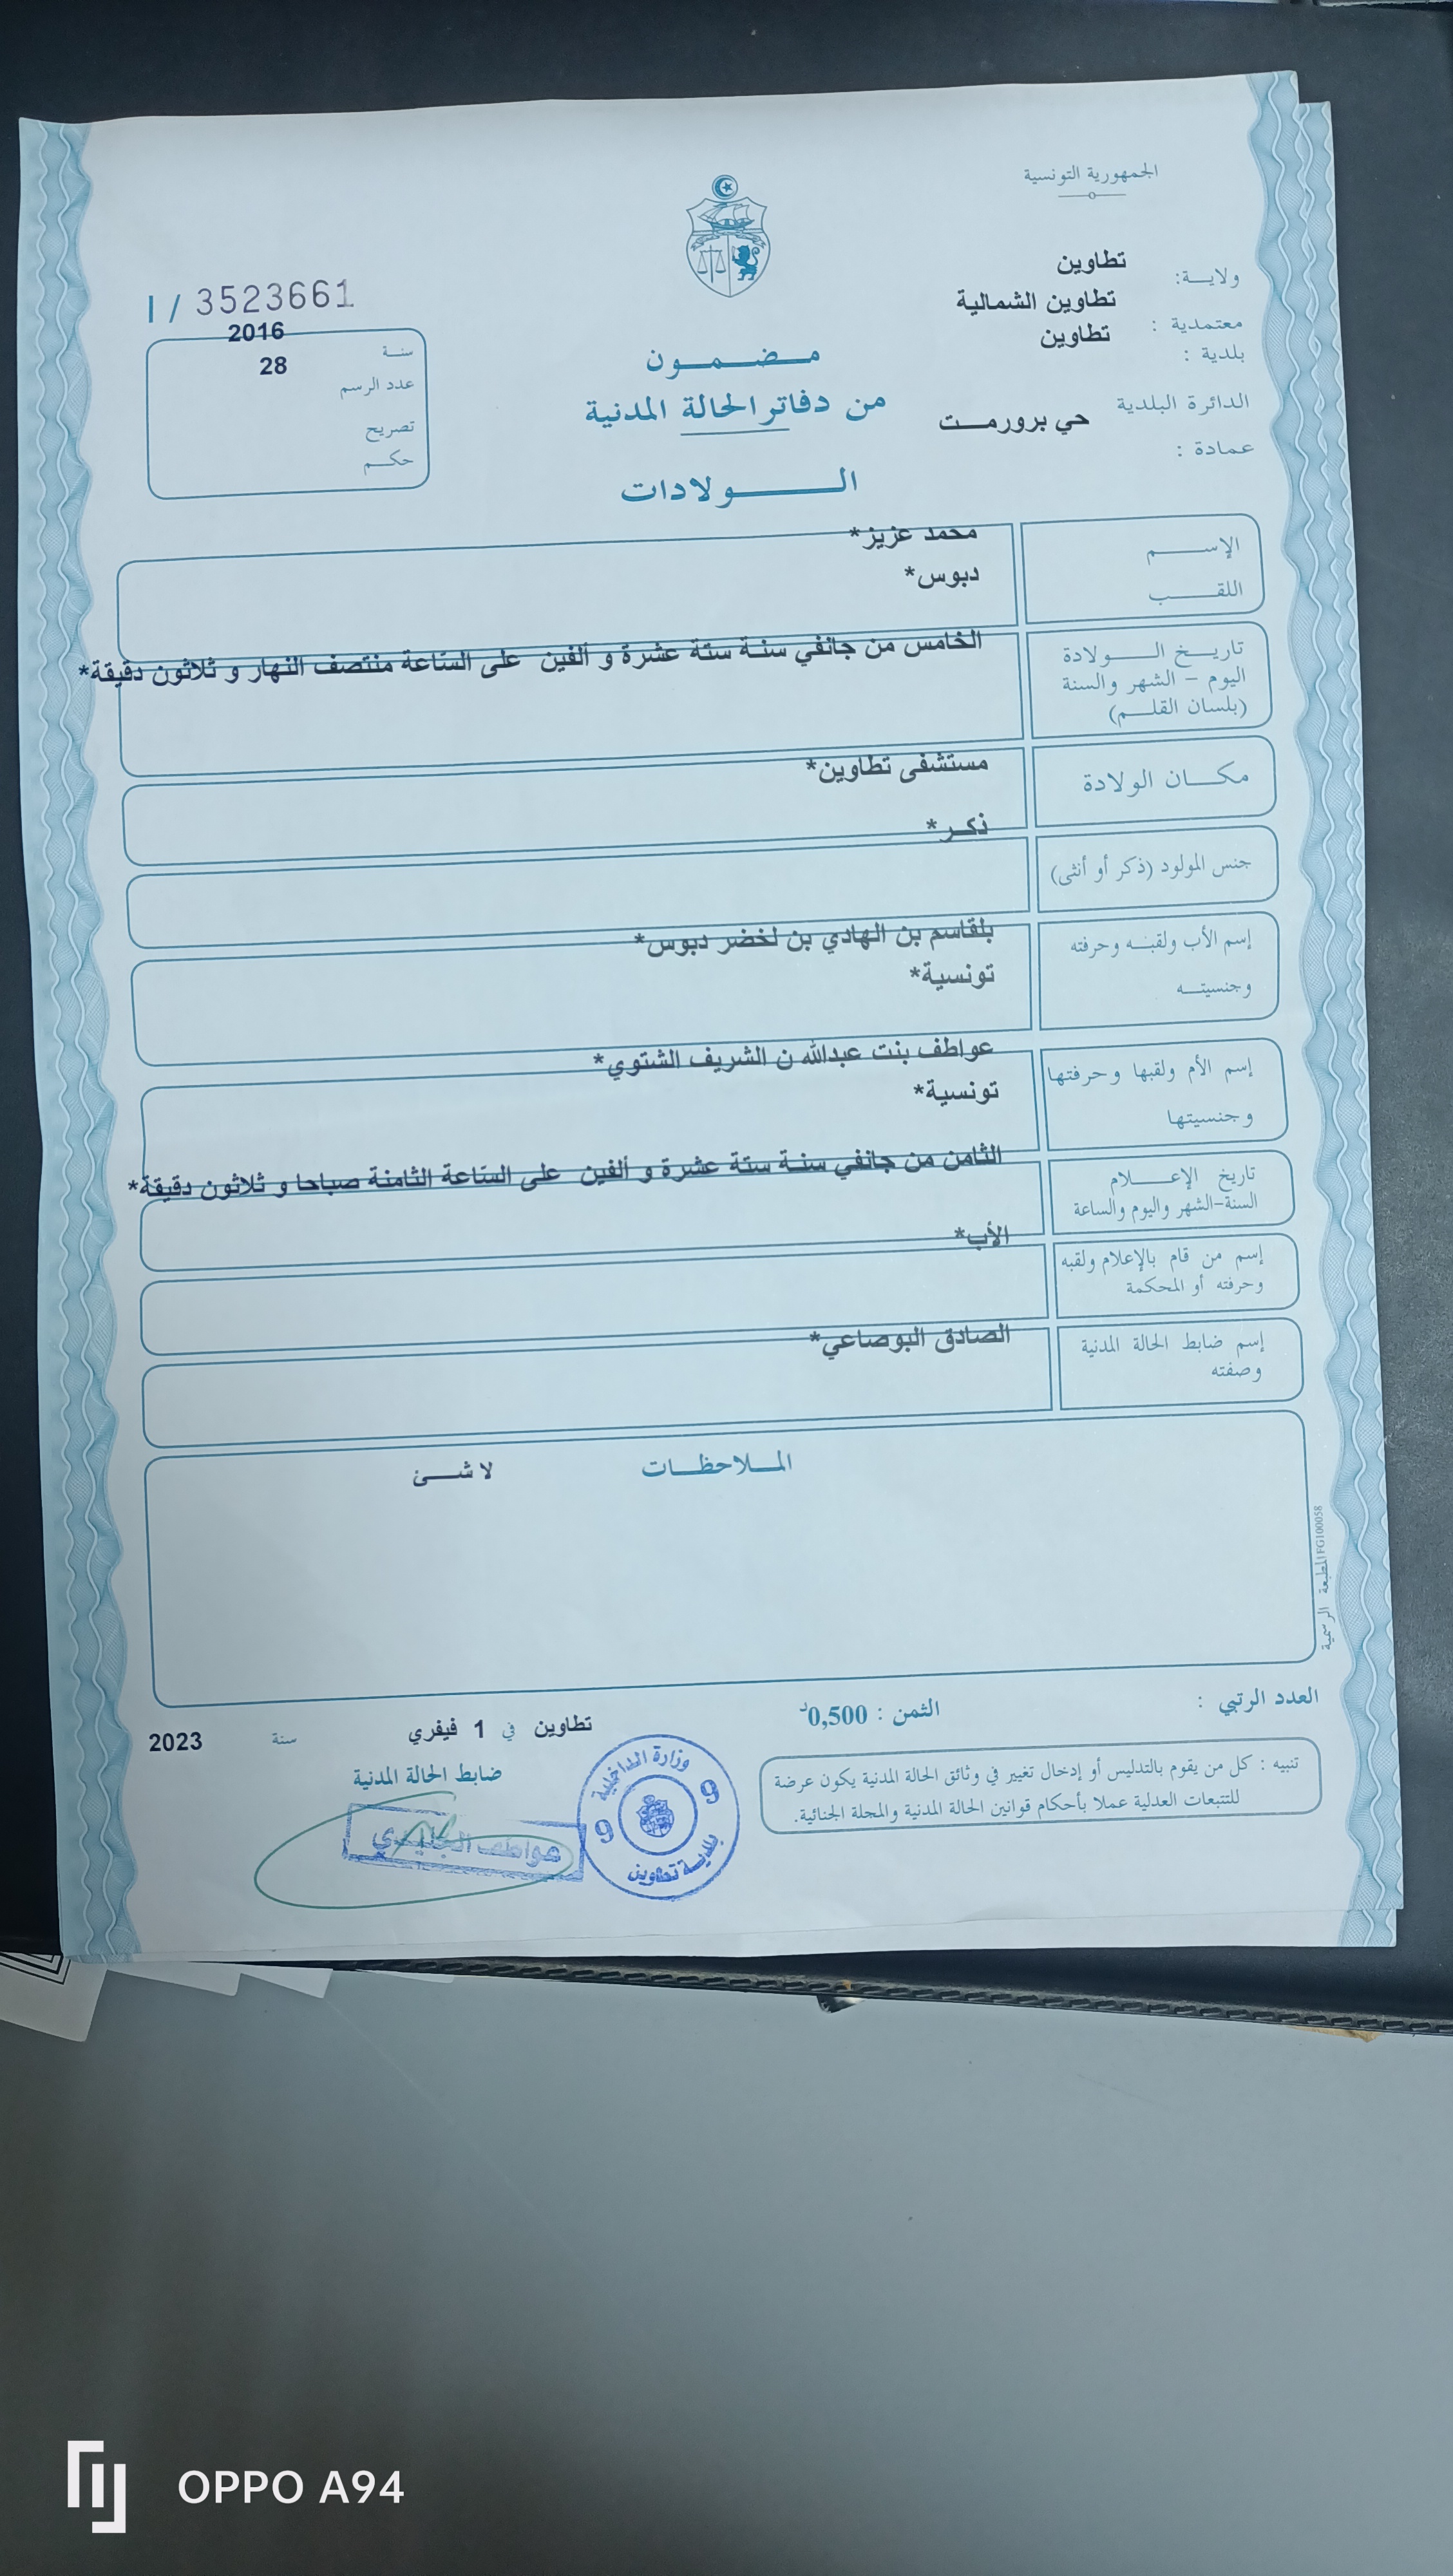 الجمهورية التونسية
ولايـــة: تطاوين
معتمدية : تطاوين الشمالية
بلدية : تطاوين
الدائرة البلدية حي برورمـــت
عمادة :
I / 3523661
سنـة 2016
عدد الرسم 28
تصريح
حكـــم
مـــضـــمـــون
من دفاتر الحالة المدنية
الـــــــولادات
الإســـــــم محمد عزيز*
اللقـــــــب دبوس*
تاريـــخ الــــــولادة
اليوم - الشهر والسنة
(بلسان القلـــم)
الخامس من جانفي سنـة ستة عشرة و ألفين على الساعة منتصف النهار و ثلاثون دقيقة*
مكــــان الولادة مستشفى تطاوين*
جنس المولود (ذكر أو أنثى) ذكـر*
إسم الأب ولقبـــه وحرفته بلقاسم بن الهادي بن لخضر دبوس*
وجنسيتـــه تونسية*
إسم الأم ولقبها وحرفتها عواطف بنت عبدالله ن الشريف الشتوي*
وجنسيتها تونسية*
تاريخ الإعــــــلام
السنة-الشهر واليوم والساعة
الثامن من جانفي سنـة ستة عشرة و ألفين على الساعة الثامنة صباحا و ثلاثون دقيقة*
إسم من قام بالإعلام ولقبه
وحرفته أو المحكمة
الأب*
إسم ضابط الحالة المدنية
وصفته
الصادق البوصاعي*
المـــلاحظـــات لا شـــئ
المطبعة الرسمية FG100058
العدد الرتبي :
الثمن : 0,500د
تطاوين في 1 فيفري سنة 2023
ضابط الحالة المدنية
تنبيه : كل من يقوم بالتدليس أو إدخال تغيير في وثائق الحالة المدنية يكون عرضة
للتتبعات العدلية عملا بأحكام قوانين الحالة المدنية والمجلة الجنائية.
وزارة الداخلية
9 9
بلدية تطاوين
OPPO A94